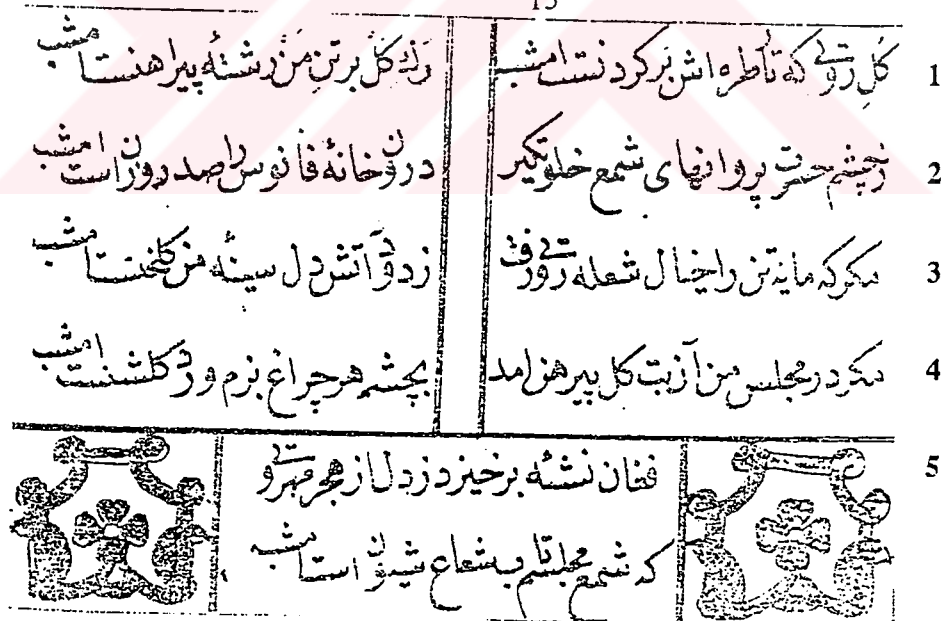 15
گل روئی که تا طره اش بر کردنست امشب رک کل بر تن من رشتهٔ پیراهنست امشب 1
زچشم حسرت پروانهای شمع خلوتکیر درون خانهٔ فانوس را صد روزن است امشب 2
مکر که را خیال شعله روئی زدود آتش دل سینهٔ من کلخنست امشب 3
مکر در مجلس من آن بت کل پیرهن امد بچشم هر چراغ بزم کلشنست امشب 4
فغان نشئه برخیزد زدل از هجر مهروئی 5
که شمع مجلسم شعاع شیون است امشب